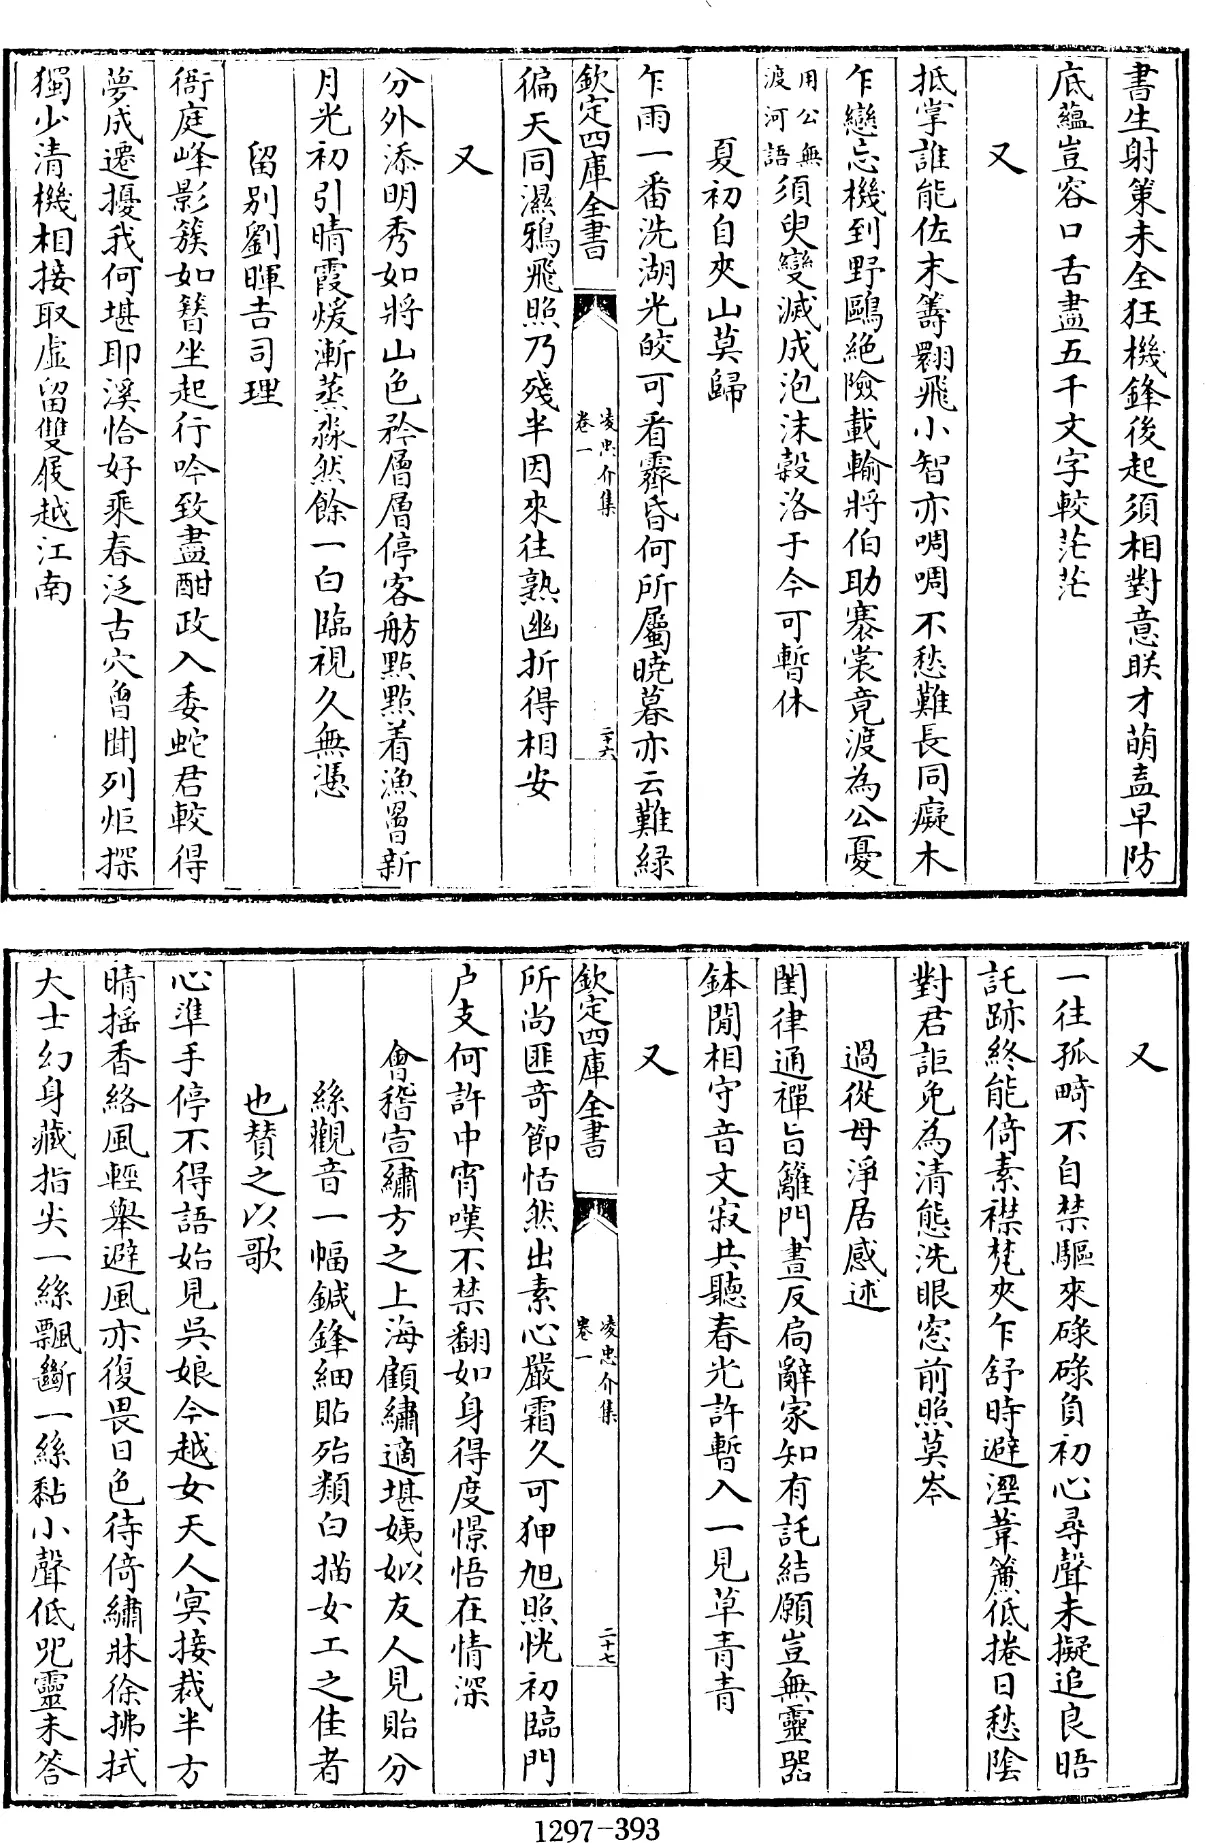 書生射策未全狂機鋒後起須相對意联才萌盍早防
底蘊豈容口舌盡五千文字較茫茫
又
抵掌誰能佐末籌翾飛小智亦啁啁不愁難長同癡木
乍戀忘機到野鷗絶險載輸將伯助褰裳竟渡為公憂
用公無渡河語須臾變滅成泡沫穀洛于今可暫休
夏初自夾山莫歸
乍雨一番洗湖光皎可看霽昏何所屬曉暮亦云難緑
欽定四庫全書
凌忠介集
卷一
二十六
徧天同濕鴉飛照乃殘半因來往熟幽折得相安
又
分外添明秀如將山色矜層層停客舫點點着漁罾新
月光初引晴霞煖漸蒸淼然餘一白臨視久無憑
留别劉暉吉司理
衙庭峰影簇如簪坐起行吟致盡酣政入委蛇君較得
夢成遷擾我何堪耶溪恰好乘春泛古穴曾聞列炬探
獨少清機相接取虛留雙屐越江南
又
一往孤畸不自禁驅來碌碌負初心尋聲未擬追良晤
託跡終能倚素襟梵夾乍舒時避溼葦簾低捲日愁陰
對君詎免為清態洗眼窓前照莫岑
過從母淨居感述
閨律通禪旨籬門晝反扃辭家知有託結願豈無靈器
鉢閒相守音文寂共聽春光許暫入一見草青青
又
欽定四庫全書
凌忠介集
卷一
二十七
所尚匪奇節恬然出素心嚴霜久可狎旭照恍初臨門
户支何許中宵嘆不禁翻如身得度憬悟在情深
會稽宣繡方之上海顧繡適堪姨姒友人見貽分
絲觀音一幅鍼鋒細貼殆類白描女工之佳者
也賛之以歌
心準手停不得語始見吳娘今越女天人冥接裁半方
晴摇香絡風輕舉避風亦復畏日色待倚繡牀徐拂拭
大士幻身藏指尖一絲飄斷一絲黏小聲低咒靈未答
1297-393